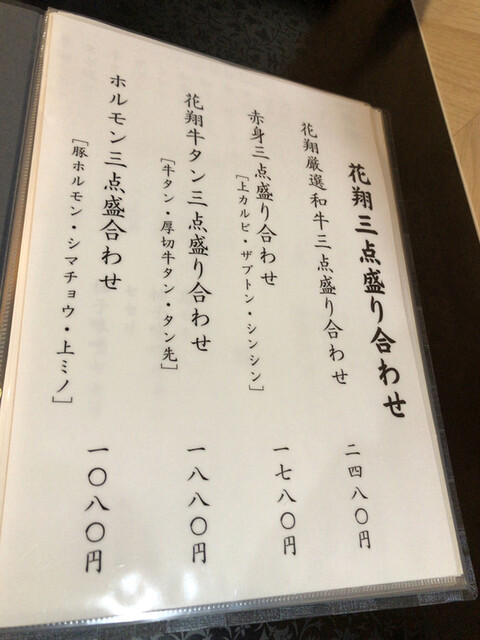 花翔三点盛り合わせ
花翔厳選和牛三点盛り合わせ
二四八〇円
赤身三点盛り合わせ
[上カルビ・ザブトン・シンシン]
一七八〇円
花翔牛タン三点盛り合わせ
[牛タン・厚切牛タン・タン先]
一八八〇円
ホルモン三点盛合わせ
[豚ホルモン・シマチョウ・上ミノ]
一〇八〇円